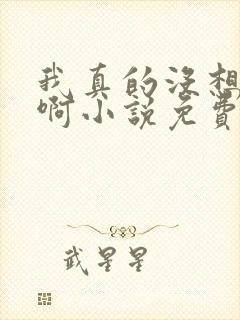 我真的没想
啊小说免费
武星星